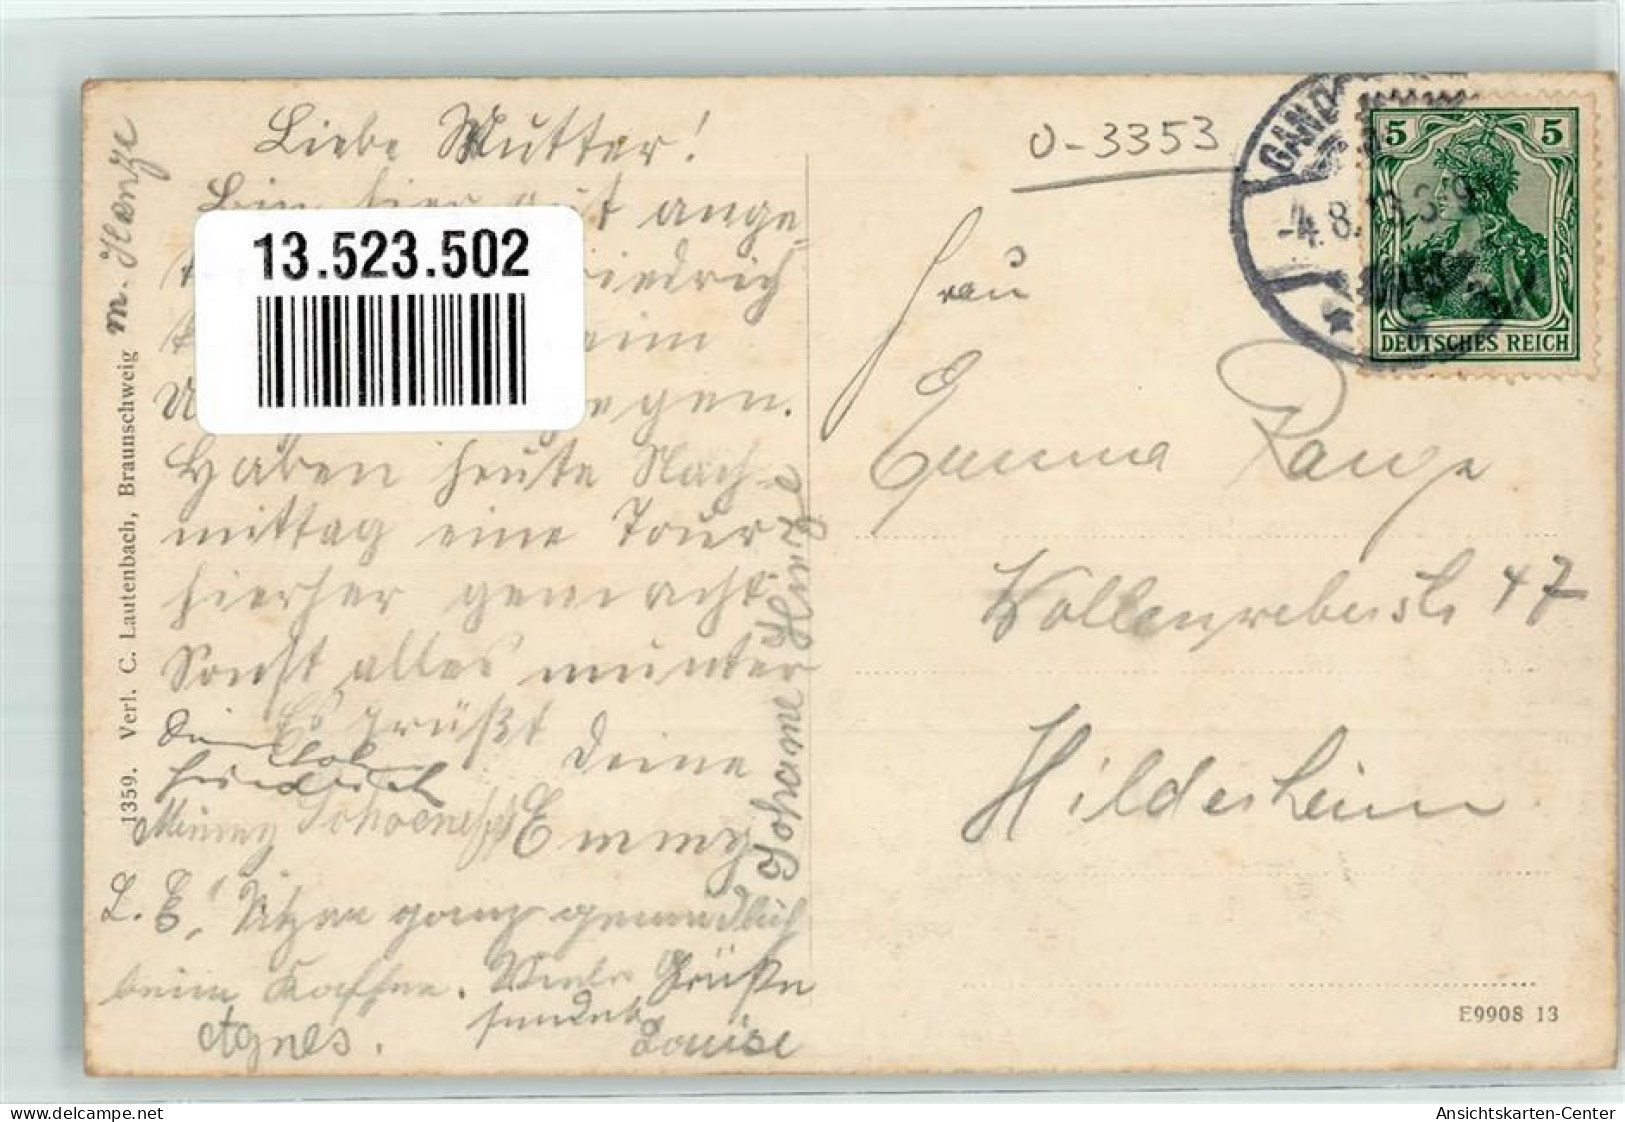 Liebe Mutter!
Bin hier gut ange-
iedrich
eim
egen.
Haben heute Nach-
mittag eine Tour
hierher gemacht.
Sonst alles munter
Es grüßt
Deine
Emmy
Dein
Friedrich
Minny
L. E.! Sitzen ganz gemüdlich
beim Kaffee. Viele Grüße
sendet
Agnes. Louise
Johanne Hinze
m. Henze
1359. Verl. C. Lautenbach, Braunschweig
13.523.502
0-3353
GAND
-4.8.13.
5 5
DEUTSCHES REICH
Frau
Emma
Wollenweberstr 47
Hildesheim
E9908 13
www.delcampe.net
Ansichtskarten-Center